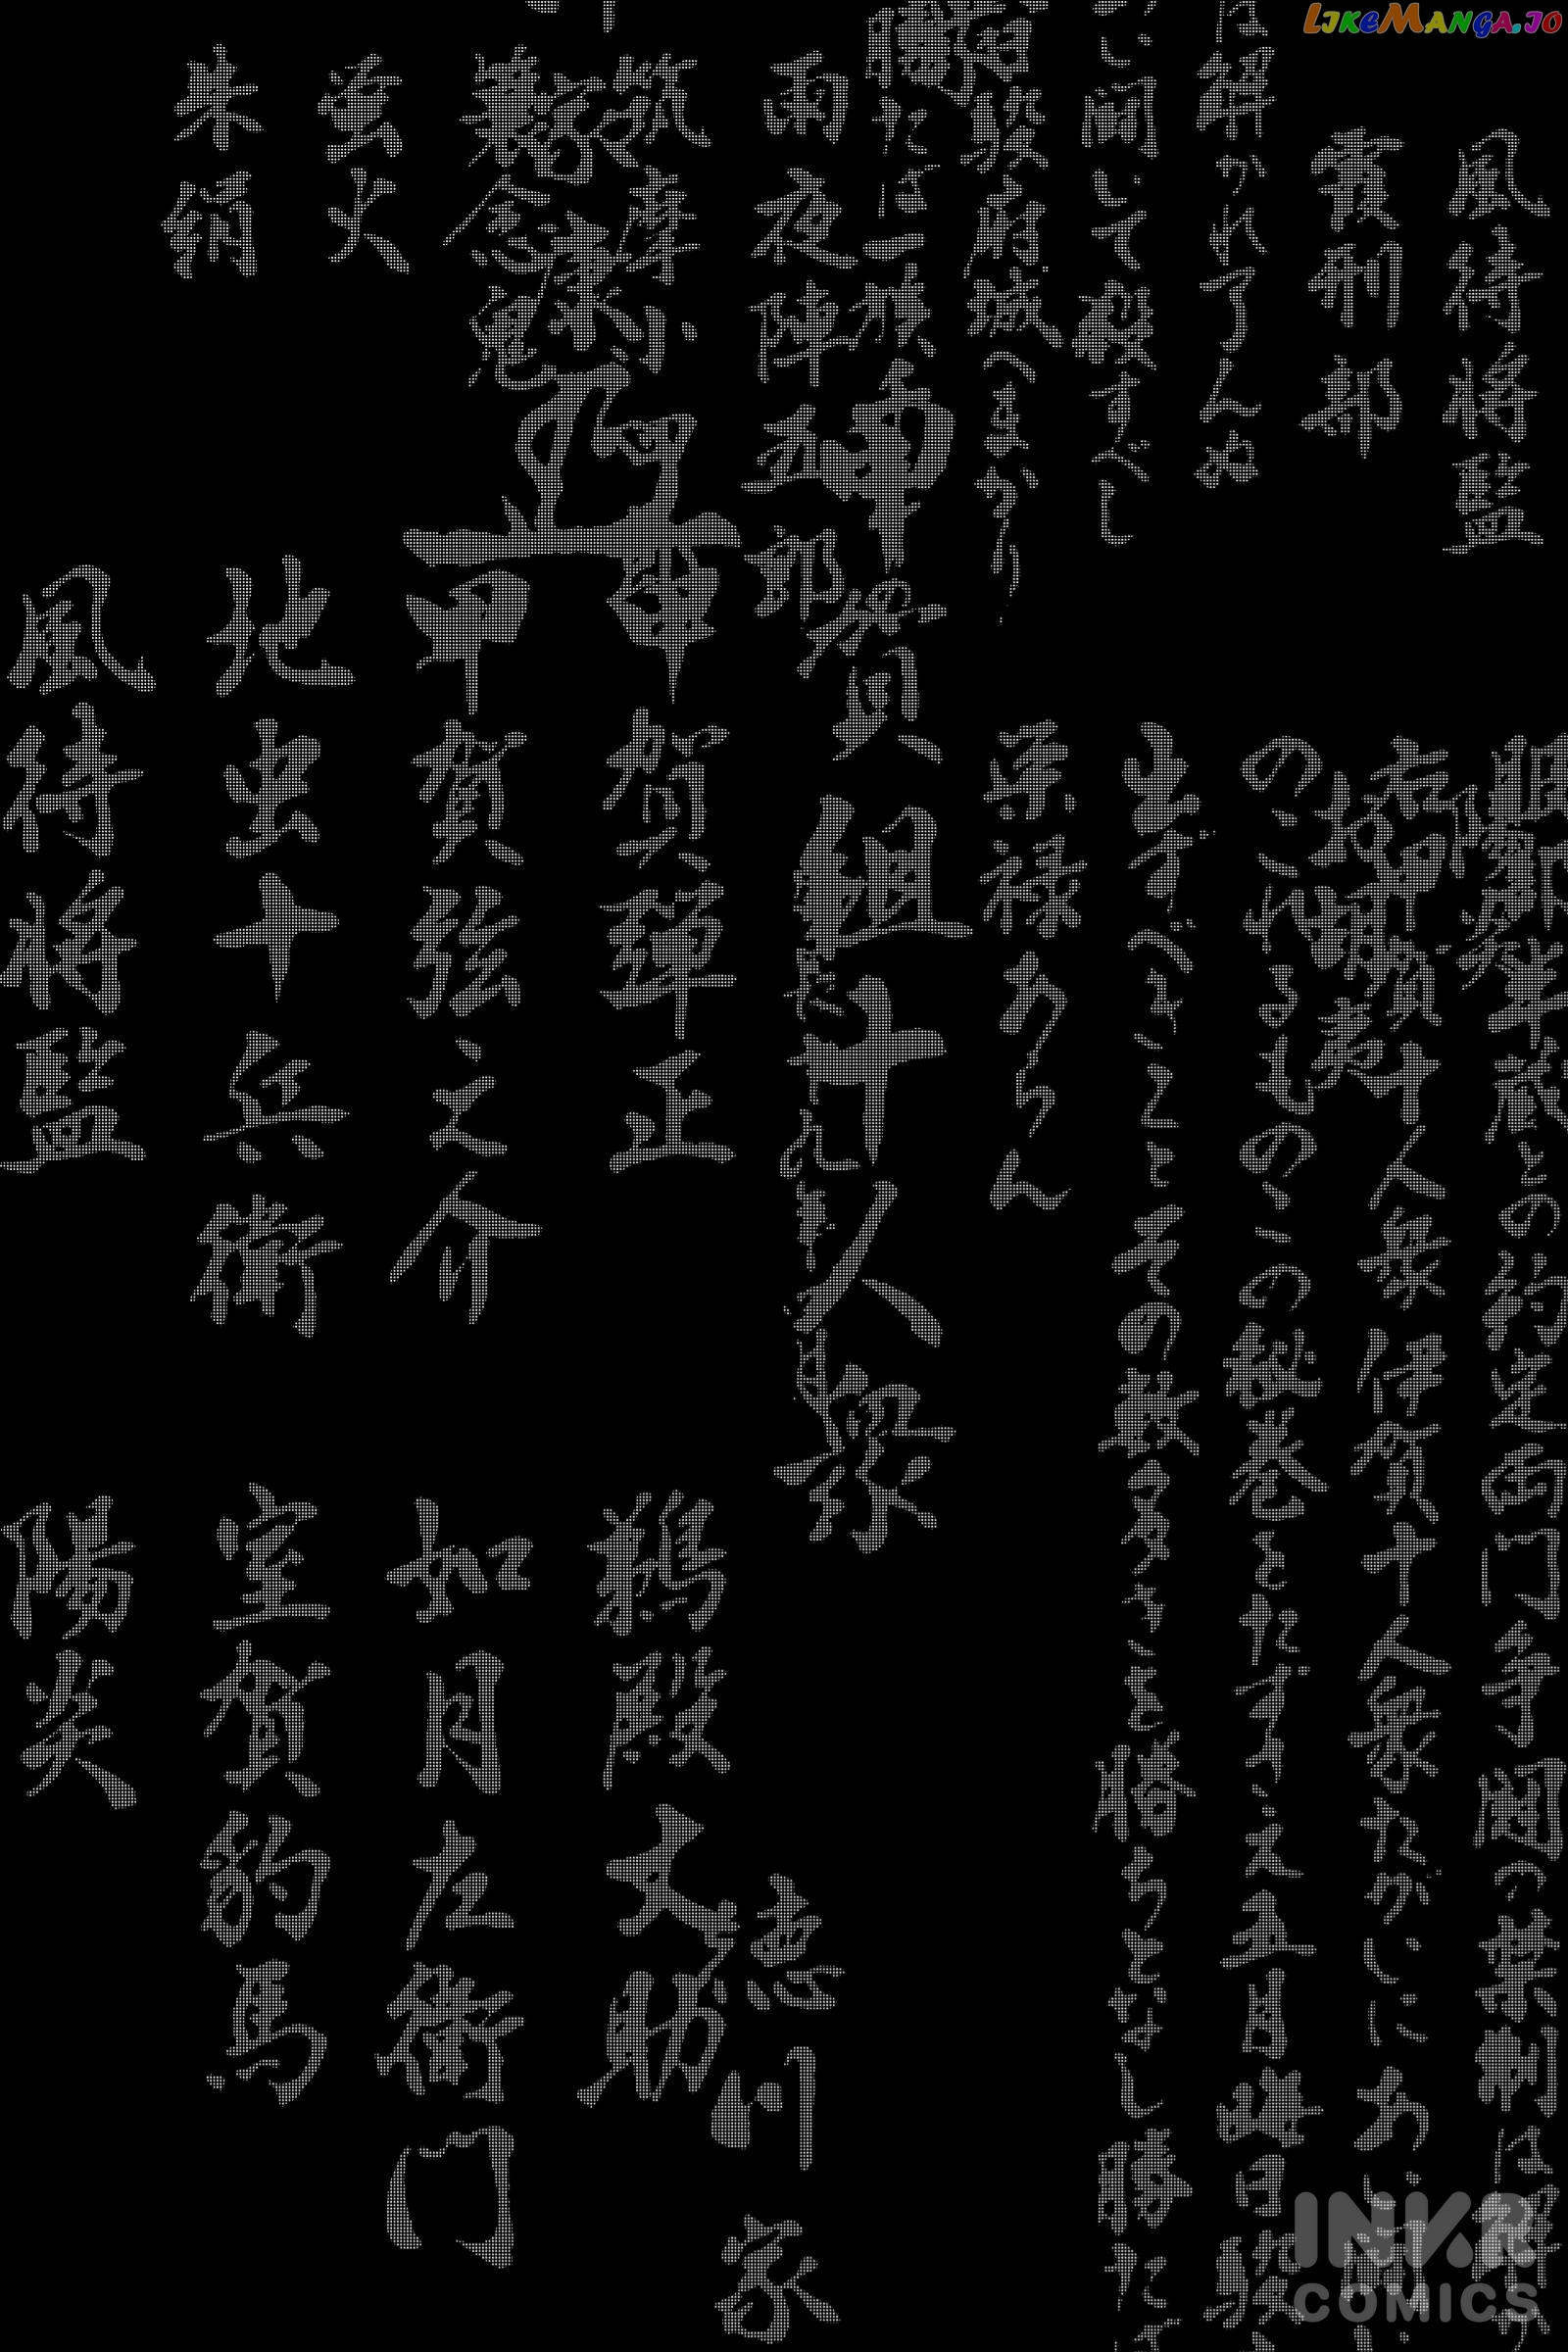 風待将監
霞刑部
は解かれ了んぬ
い闘いて殺すべし
駿府城へまかり
たば一族
雨夜陣五郎
筑摩小
蓑念鬼
蛍火
朱絹
陽炎
お胡夷
服部半蔵との約定両門争闘の禁制は解か
甲賀十人衆伊賀十人衆たがいにあい闘
のこれるものこの秘巻をたずさえ五月晦日駿
出ずべきことその数多きを勝ちとなし勝たば
栄禄あらん
甲賀組十人衆
甲賀弾正 鵜殿丈助
甲賀弦之介 如月左衛門
地虫十兵衛 室賀豹馬
風待将監 陽炎
徳川家
LIKEMANGA.IO
INKR
COMICS